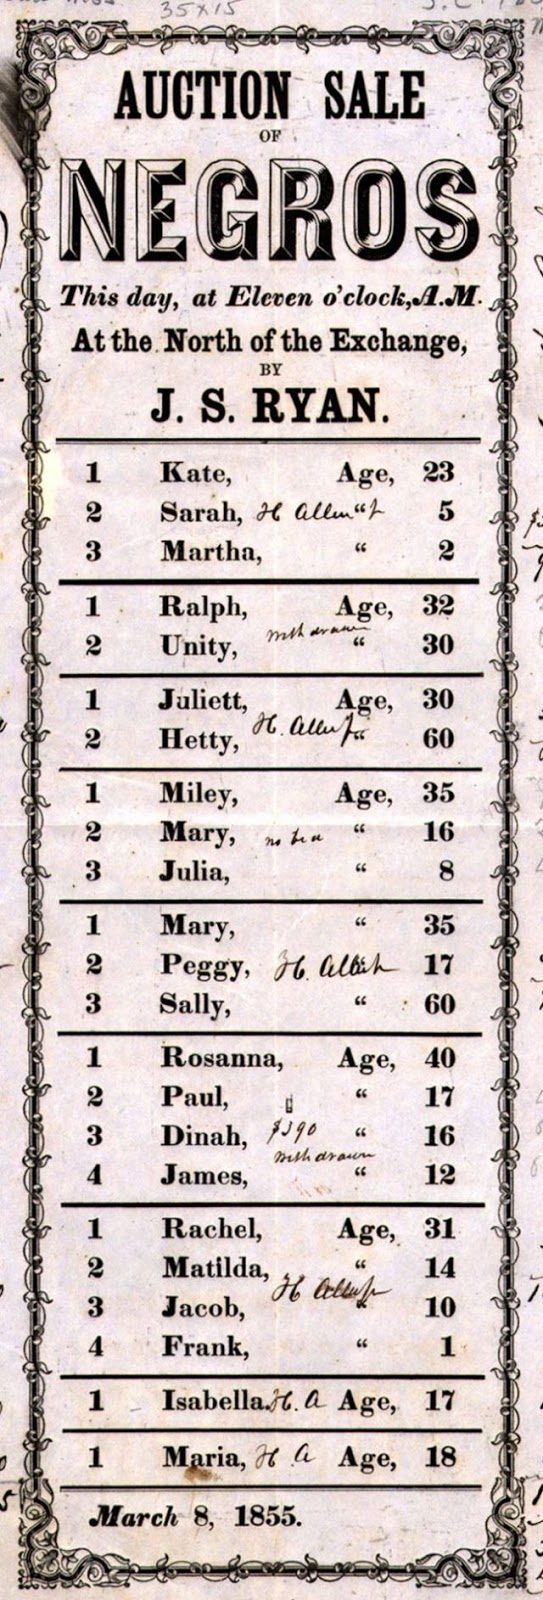 35x15
AUCTION SALE
OF
NEGROS
This day, at Eleven o'clock, A.M.
At the North of the Exchange,
BY
J. S. RYAN.
1 Kate, Age, 23
2 Sarah, H “ 5
3 Martha, “ 2
1 Ralph, Age, 32
withdrawn
2 Unity, “ 30
1 Juliett, Age, 30
H.
2 Hetty, “ 60
1 Miley, Age, 35
2 Mary, “ 16
3 Julia, “ 8
1 Mary, “ 35
2 Peggy, H. “ 17
3 Sally, “ 60
1 Rosanna, Age, 40
2 Paul, “ 17
3 Dinah, $390 “ 16
withdrawn
4 James, “ 12
1 Rachel, Age, 31
2 Matilda, “ 14
H
3 Jacob, “ 10
4 Frank, “ 1
1 Isabella. H. A Age, 17
1 Maria, H A Age, 18
March 8, 1855.